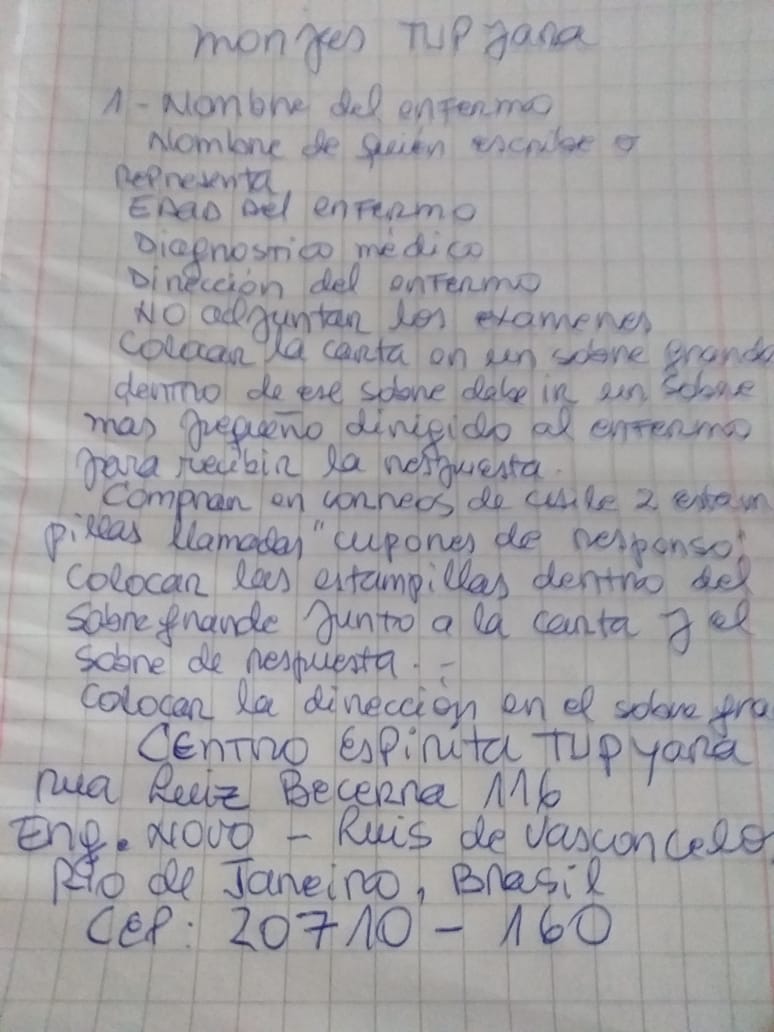 monjes TUPyara
1 - Nombre del enfermo
Nombre de quién escribe o
representa
EDAD del enfermo
Diagnostico médico
Dirección del enfermo
NO adjuntan los examenes
Colocar la carta en un sobre grande
dentro de ese sobre debe ir un sobre
mas pequeño dirigido al enfermo
para recibir la respuesta.
Comprar en correos de chile 2 estam
pillas llamadas "cupones de responso"
Colocar las estampillas dentro del
sobre grande junto a la carta y el
sobre de respuesta. -
Colocar la dirección en el sobre gra
CENTRO ESPIRITA TUPyara
rua Luiz Becerra 116
Eng. NOVO - Luis de Vasconcelo
Rio de Janeiro, Brasil
CEP: 20710 - 160